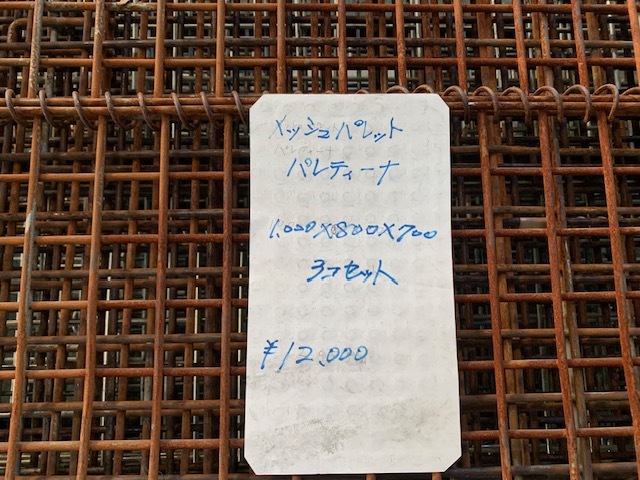 メッシュパレット
パレティーナ
パレティーナ
1.000×800×700
3コセット
¥12.000